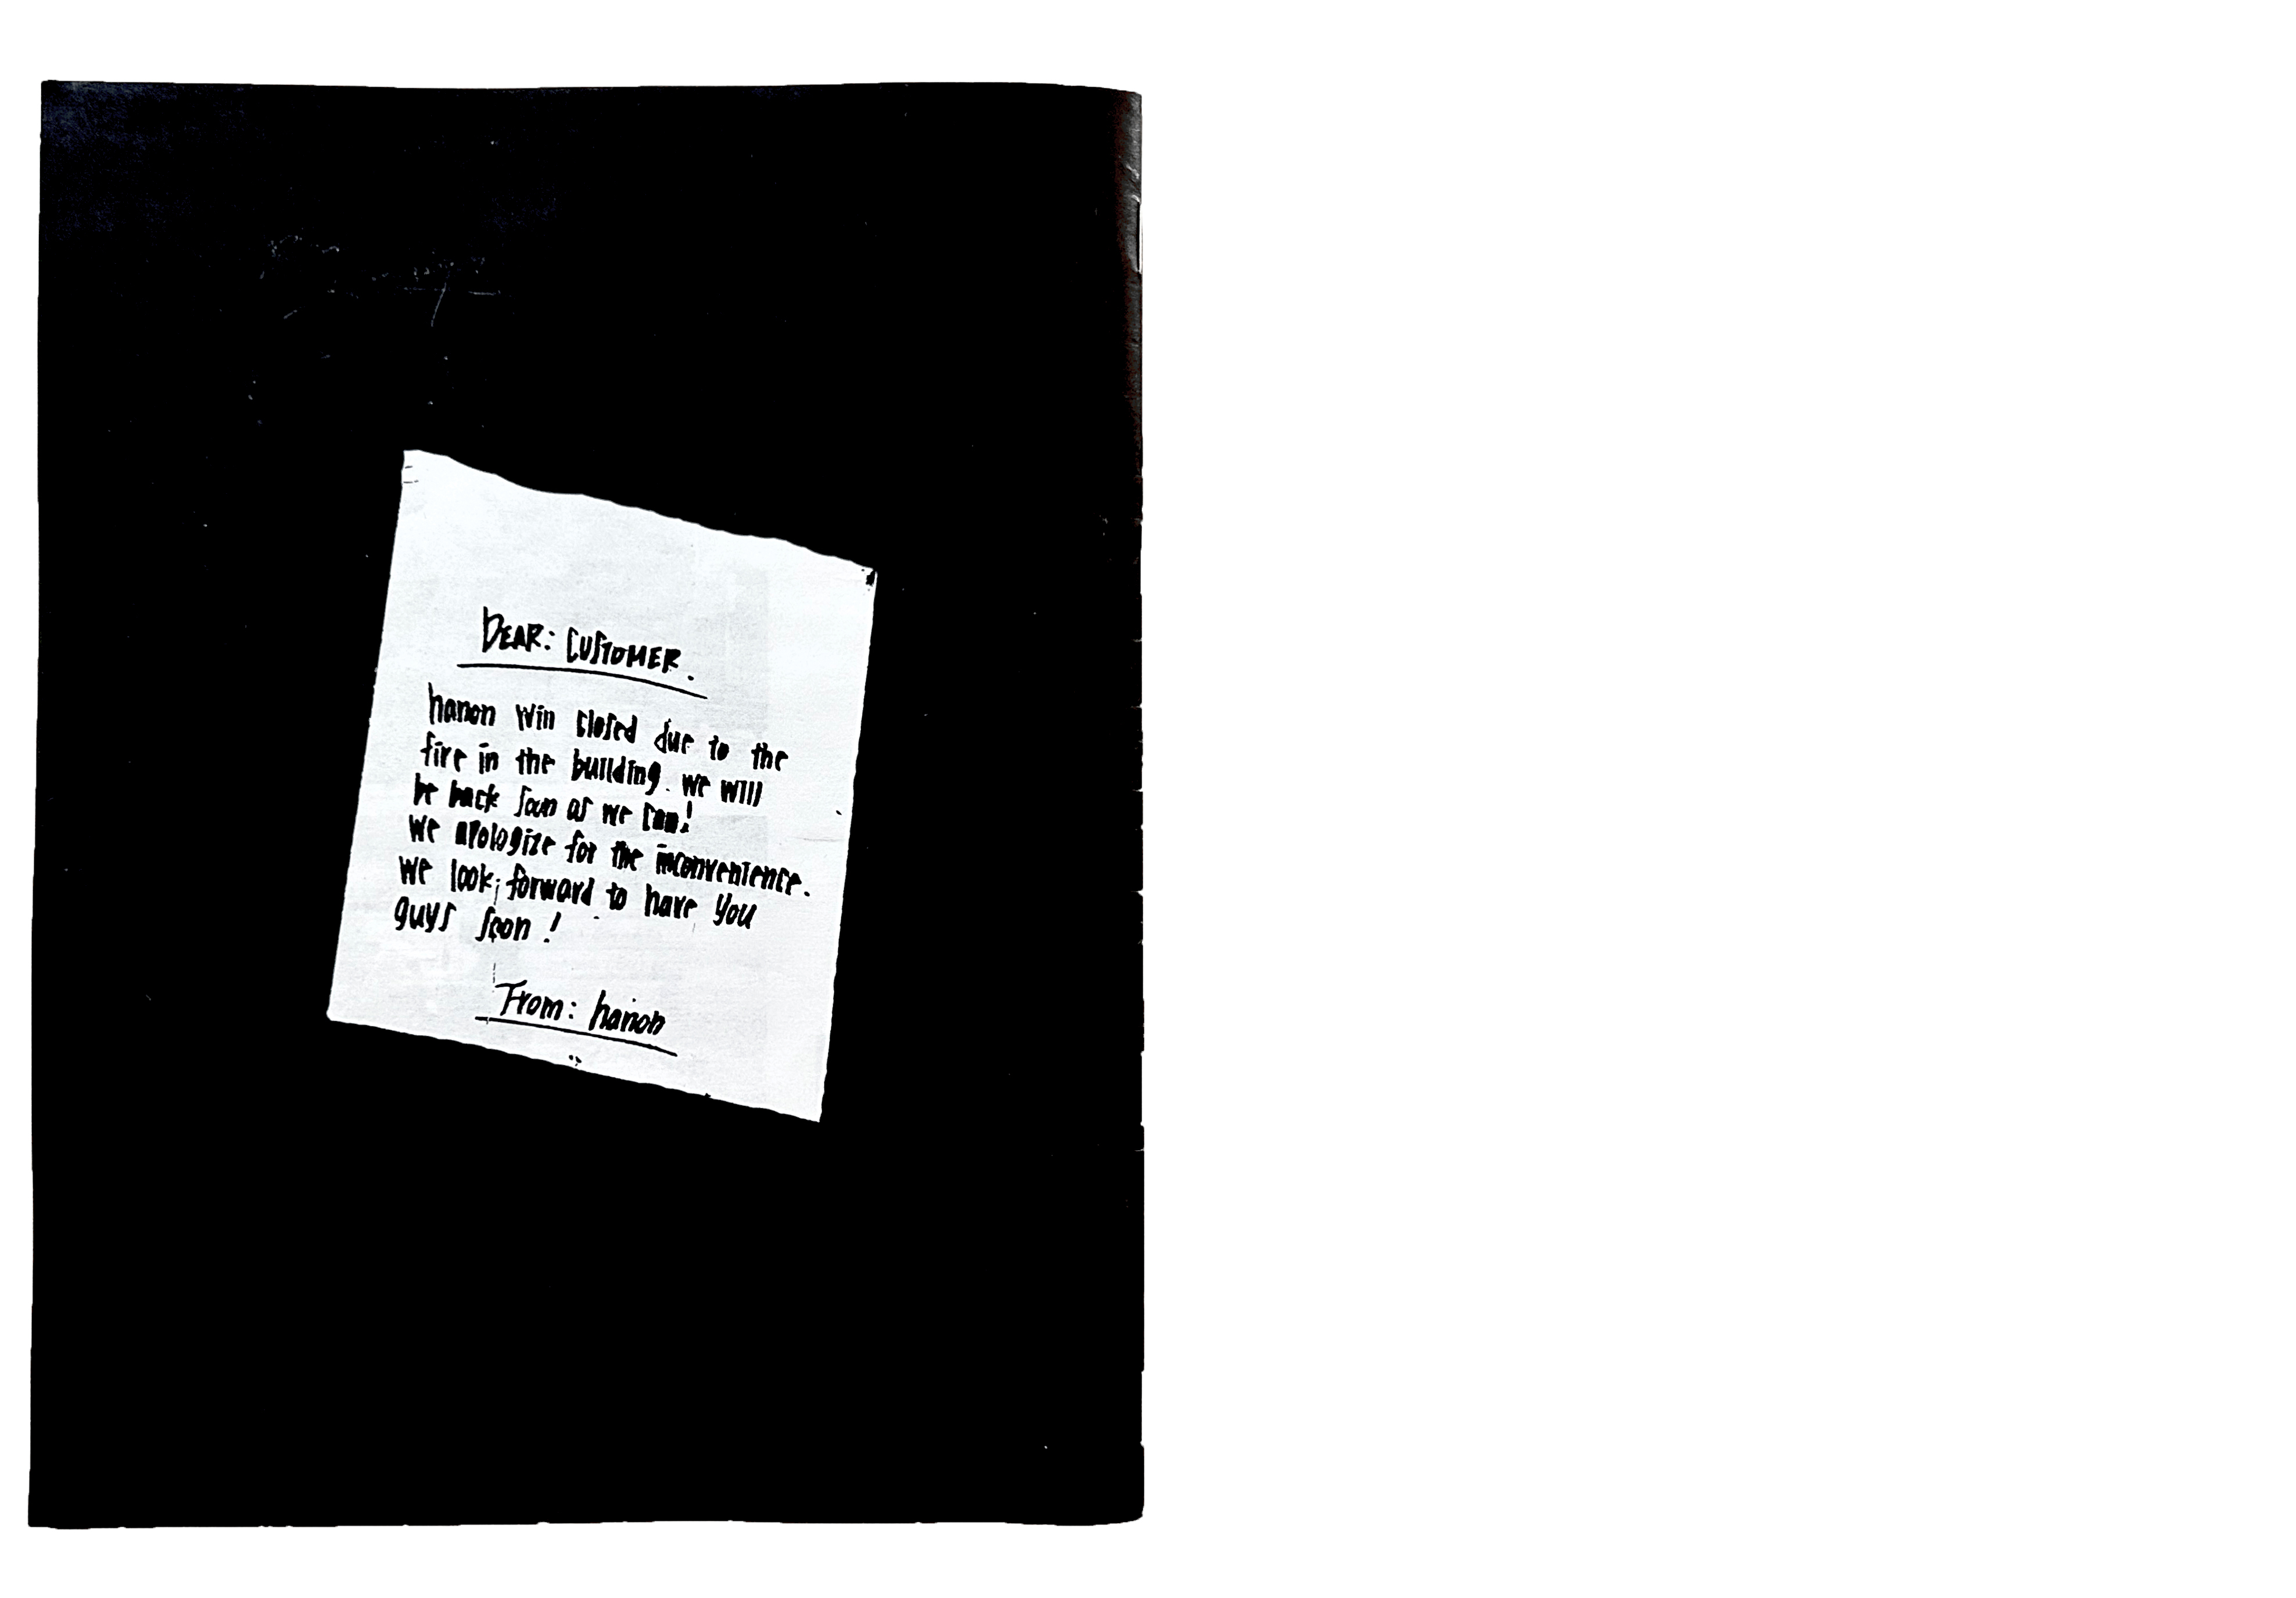 DEAR: CUSTOMER.
hanon win closed due to the
fire in the building. we will
be back soon as we can!
we apologize for the inconvenience.
we look forward to have you
guys soon!
From: hanon